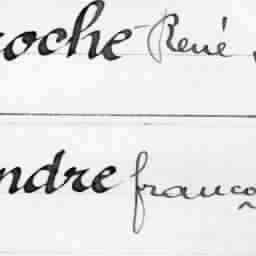 roche René
ndre franco